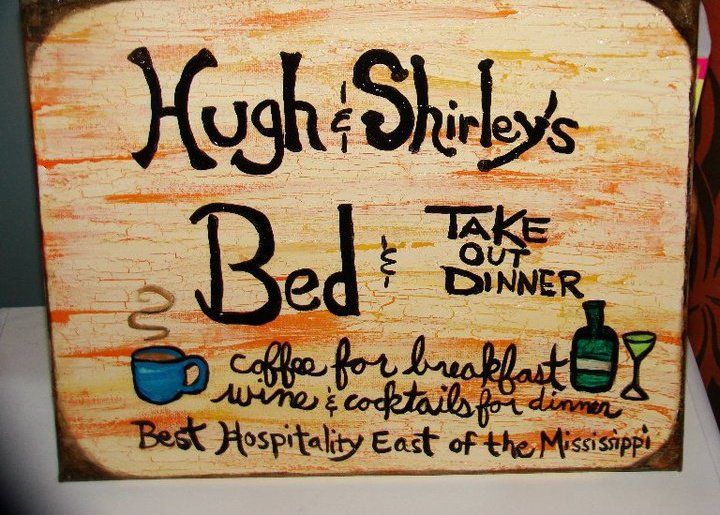 Hugh & Shirley's
Bed & TAKE OUT DINNER
coffee for breakfast
wine & cocktails for dinner
Best Hospitality East of the Mississippi